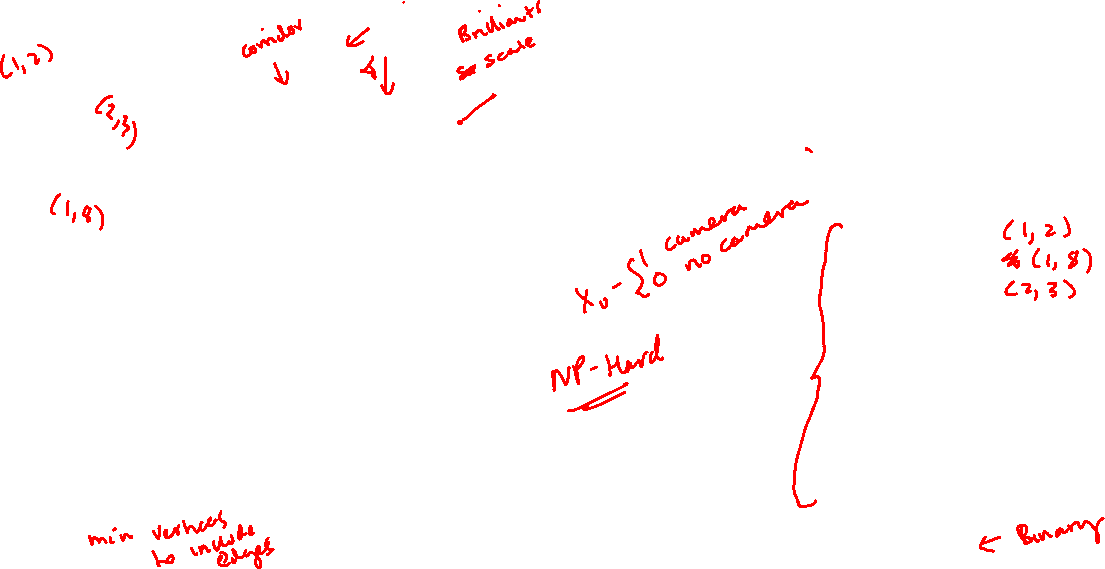 corridor
Brilliant
so scale
(1,2)
(2,3)
(1,8)
x_v - { 1 camera
0 no camera
NP-Hard
(1,2)
(1,8)
(2,3)
min vertices
to include
edges
← Binary